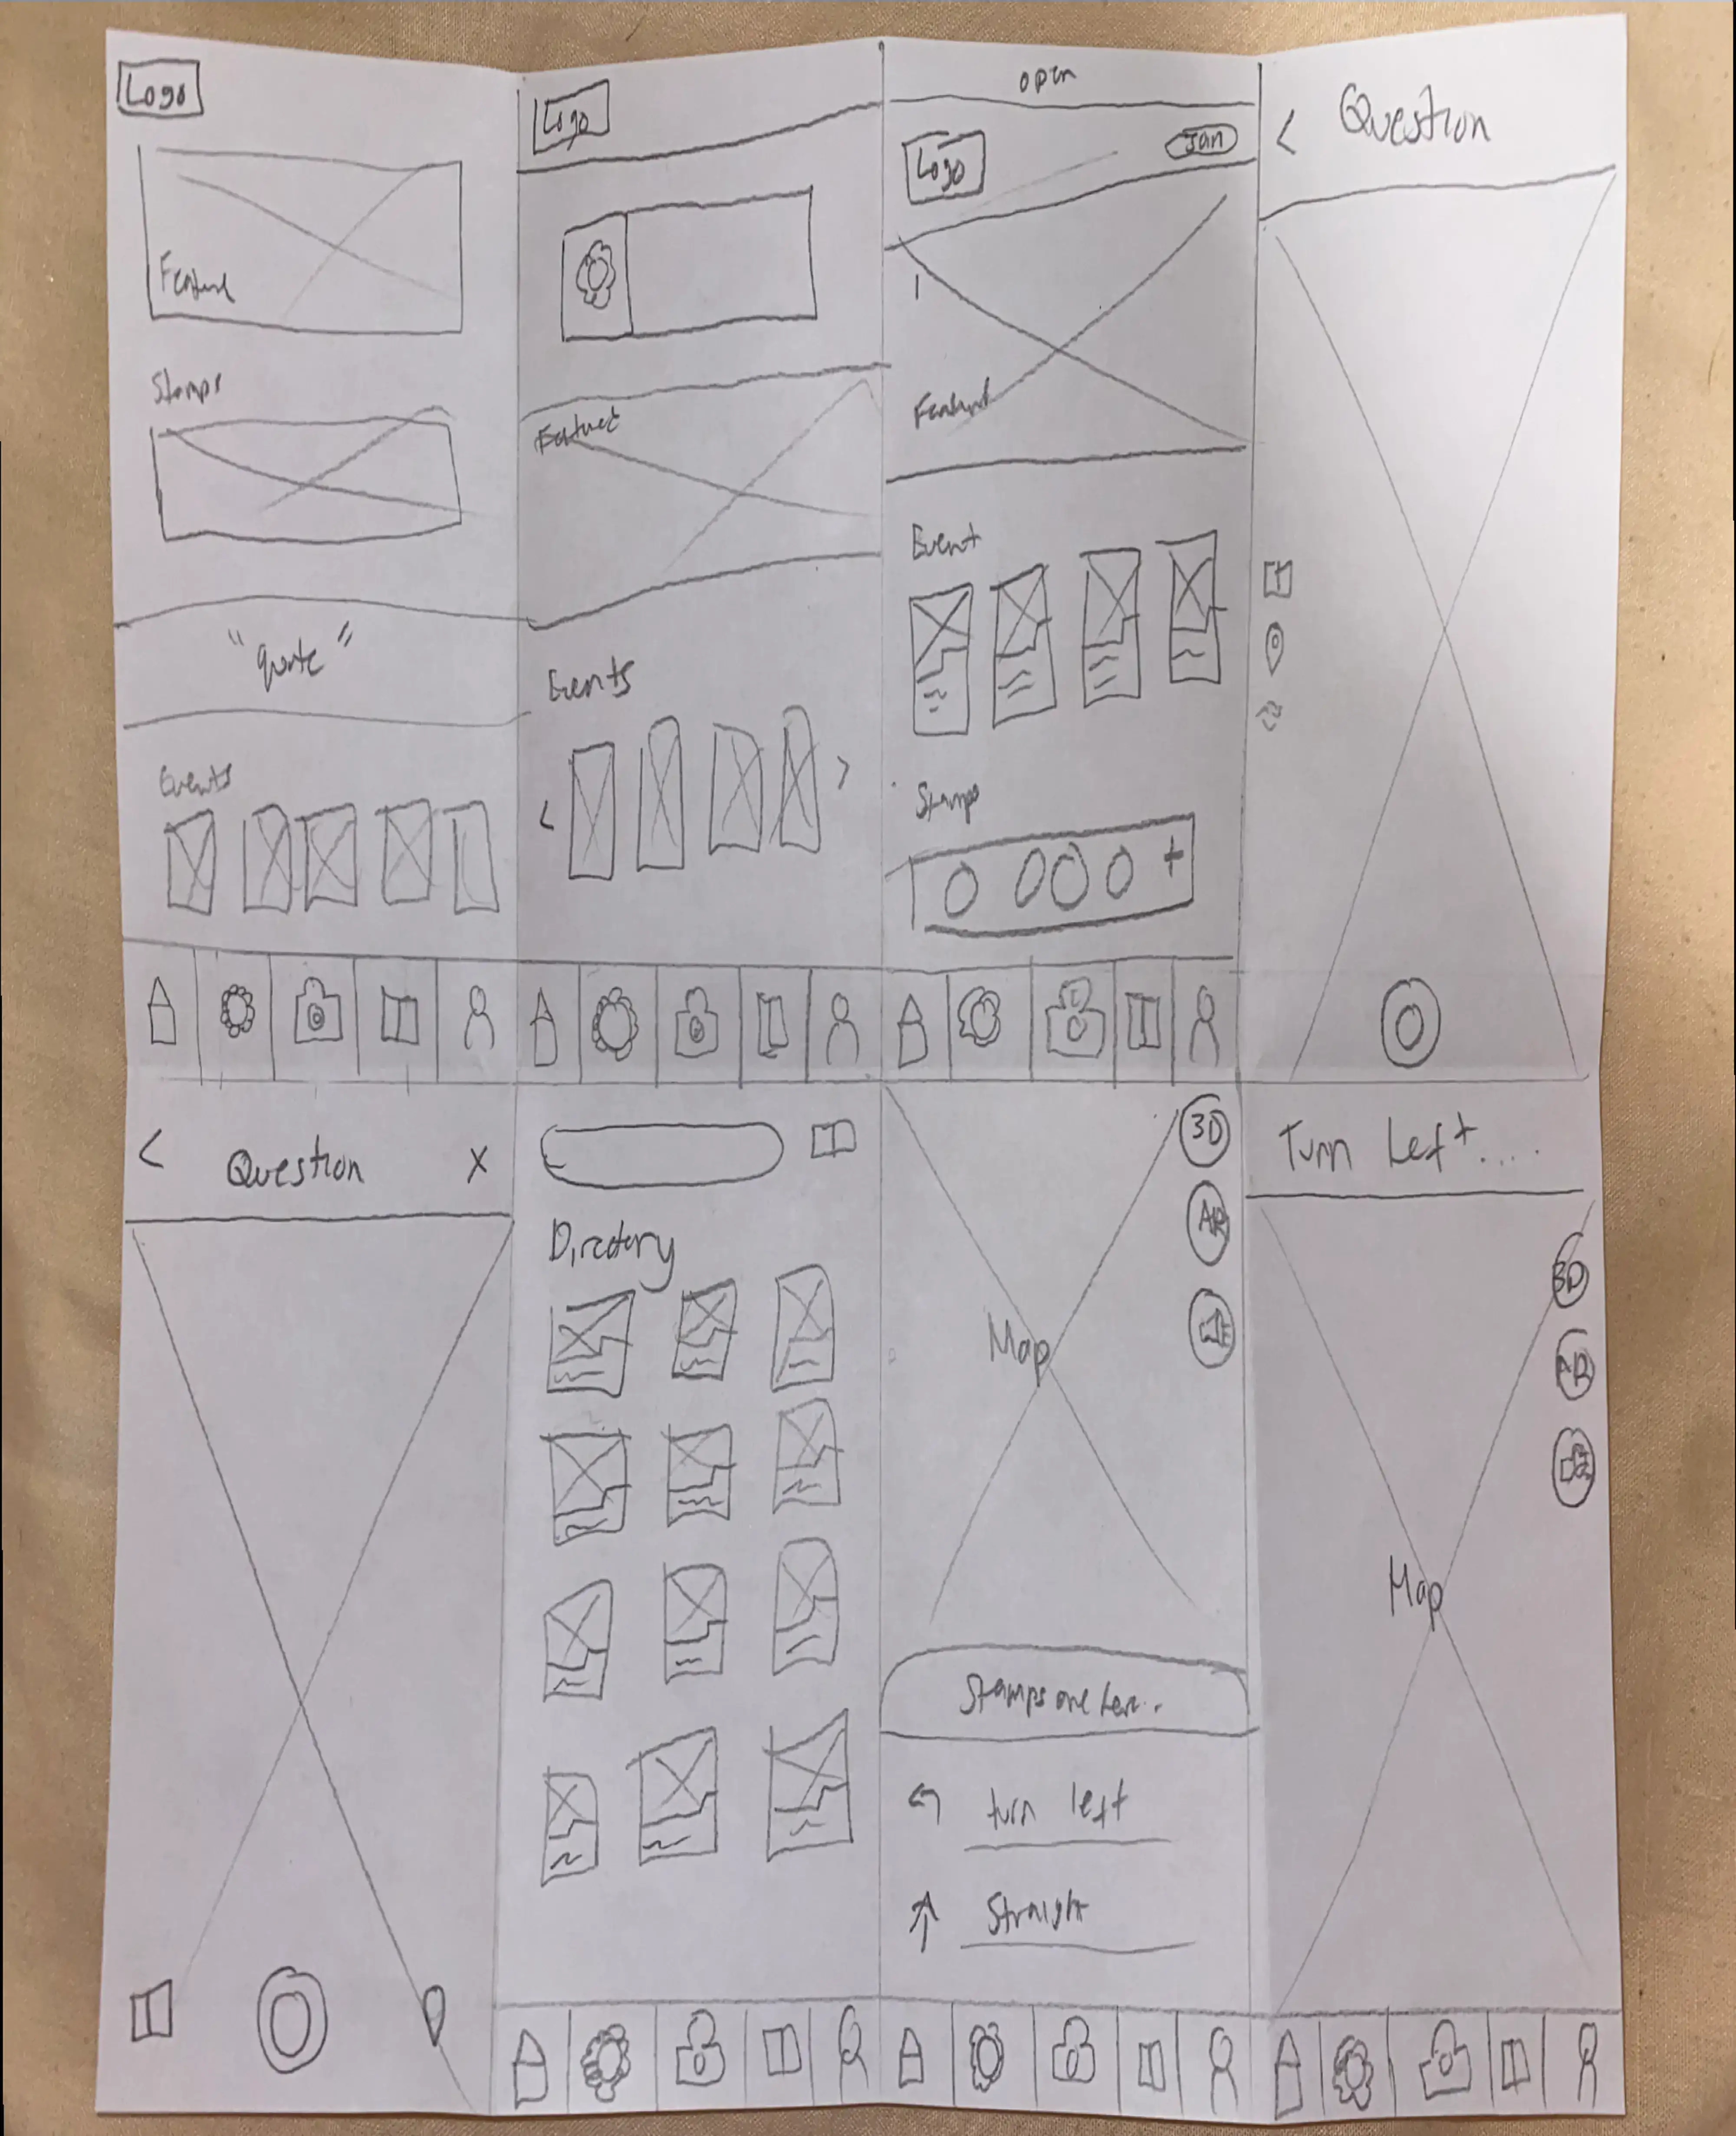 Logo
Feature
Stamps
"quote"
Events
Logo
Featured
Events
open
Logo
Jan
Featured
Event
Stamps
Question
Question
X
Directory
3D
AR
Map
Stamps are here..
turn left
Straight
Turn Left....
3D
AR
Map